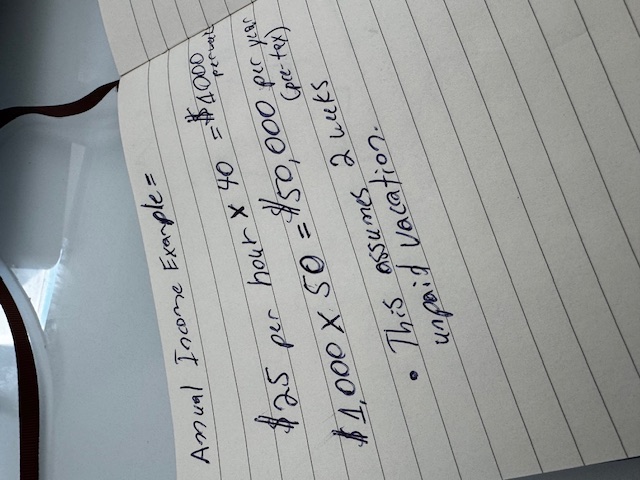 Annual Income Example =
$25 per hour × 40 = $1000 per week
$1,000 × 50 = $50,000 per year
(pre-tax)
• This assumes 2 weeks
unpaid vacation.